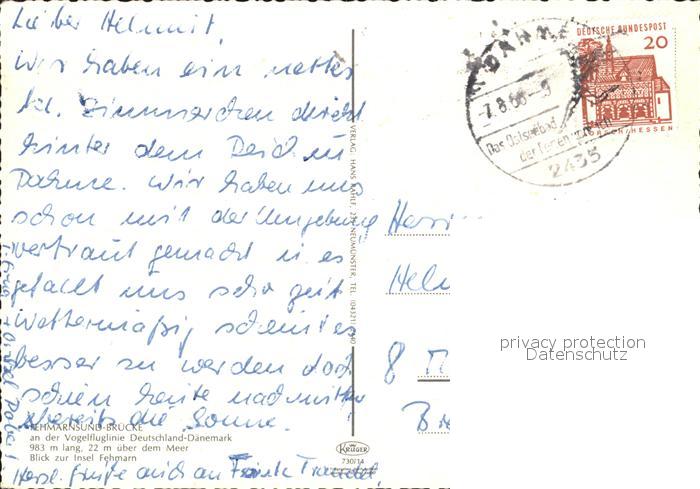 Lieber Helmut,
Wir haben ein nettes
kl. Zimmerchen direkt
hinter dem Deich in
Dahme. Wir haben uns
schon mit der Umgebung
vertraut gemacht u. es
gefällt uns sehr gut
Wettermäßig scheint es
besser zu werden doch
schien heute nachmittag
bereits die Sonne.
FEHMARNSUND-BRÜCKE
an der Vogelfluglinie Deutschland-Dänemark
983 m lang, 22 m über dem Meer
Blick zur Insel Fehmarn
Herzl. Grüße auch an
VERLAG HANS KAHLF, NEUMÜNSTER, TEL.
KRÜGER
730/14
DEUTSCHE BUNDESPOST
20
LORSCH/HESSEN
DAHME
-7.8.66-9
Das Ostseebad
2435
Herrn
8
privacy protection
Datenschutz